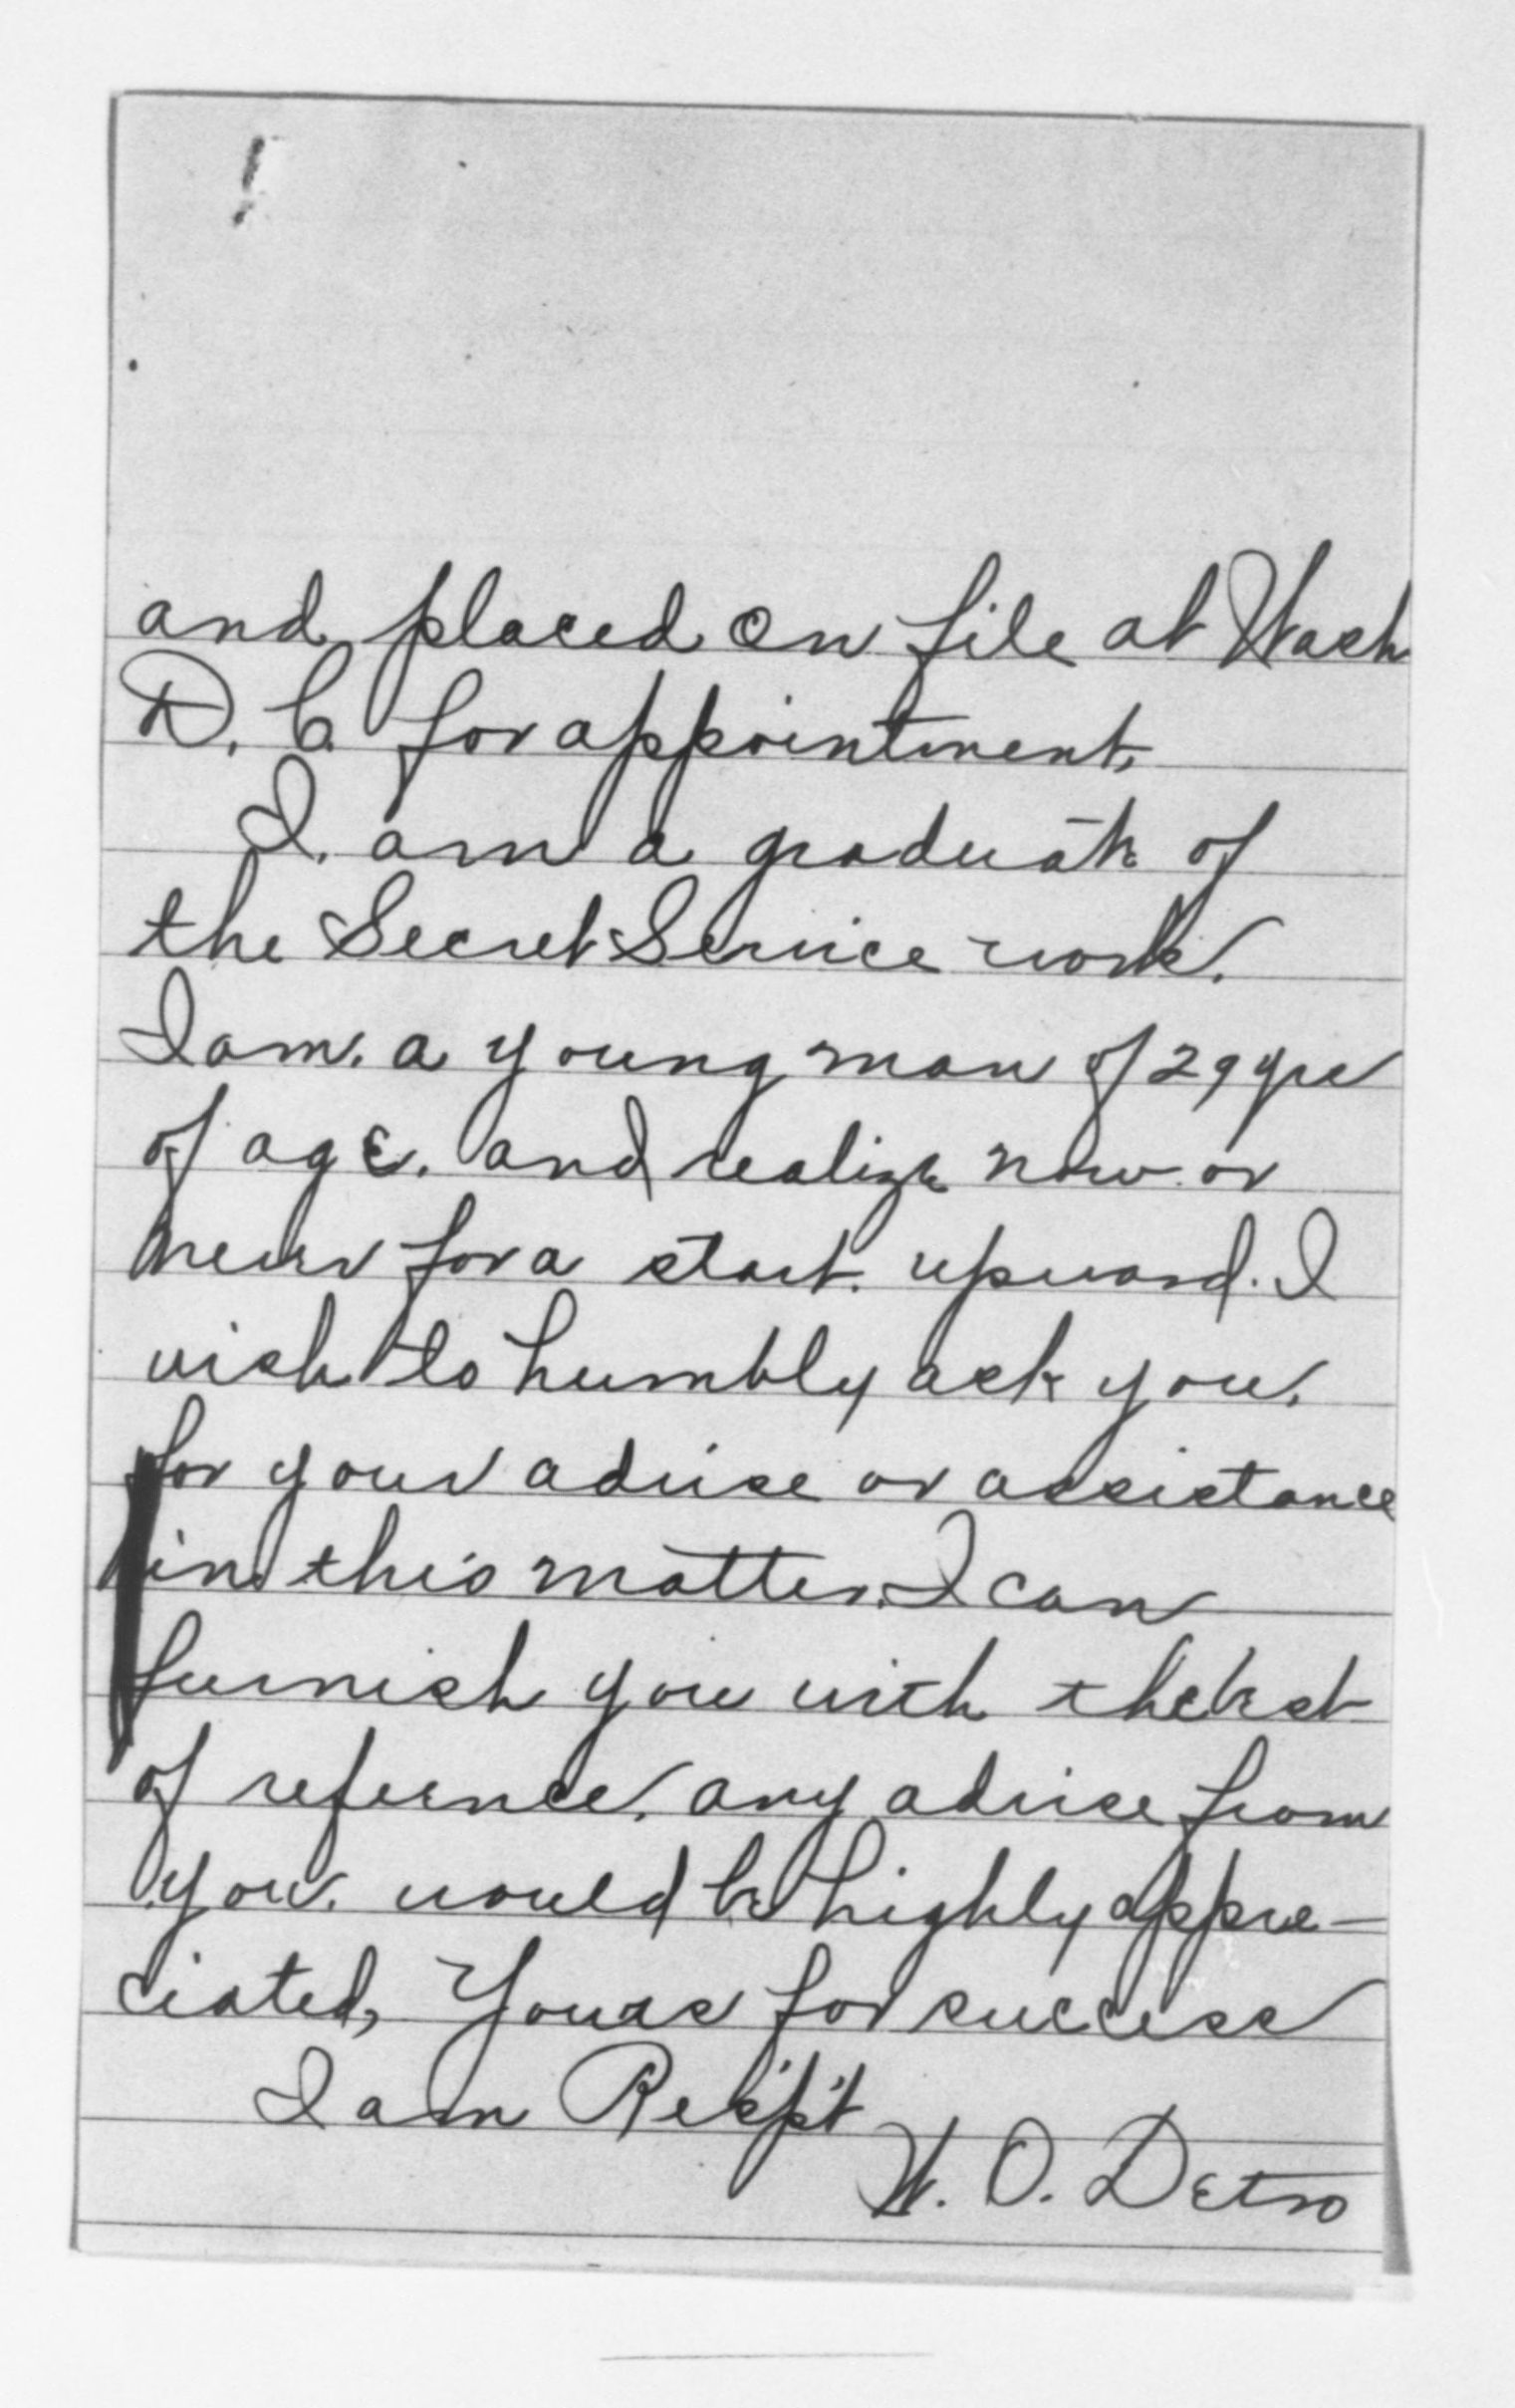 and placed on file at Wash
D. C. for appointment,
I. am a graduate of
the Secret Service work.
I am. a young man of 29 yrs
of age. and realize now or
never for a start. upward. I
wish to humbly ask you.
for your advise or assistance
in this matter. I can
furnish you with the best
of refernce. any advise from
you. would be highly appre-
ciated, Yours for success
I am Resp't
W. O. Detro